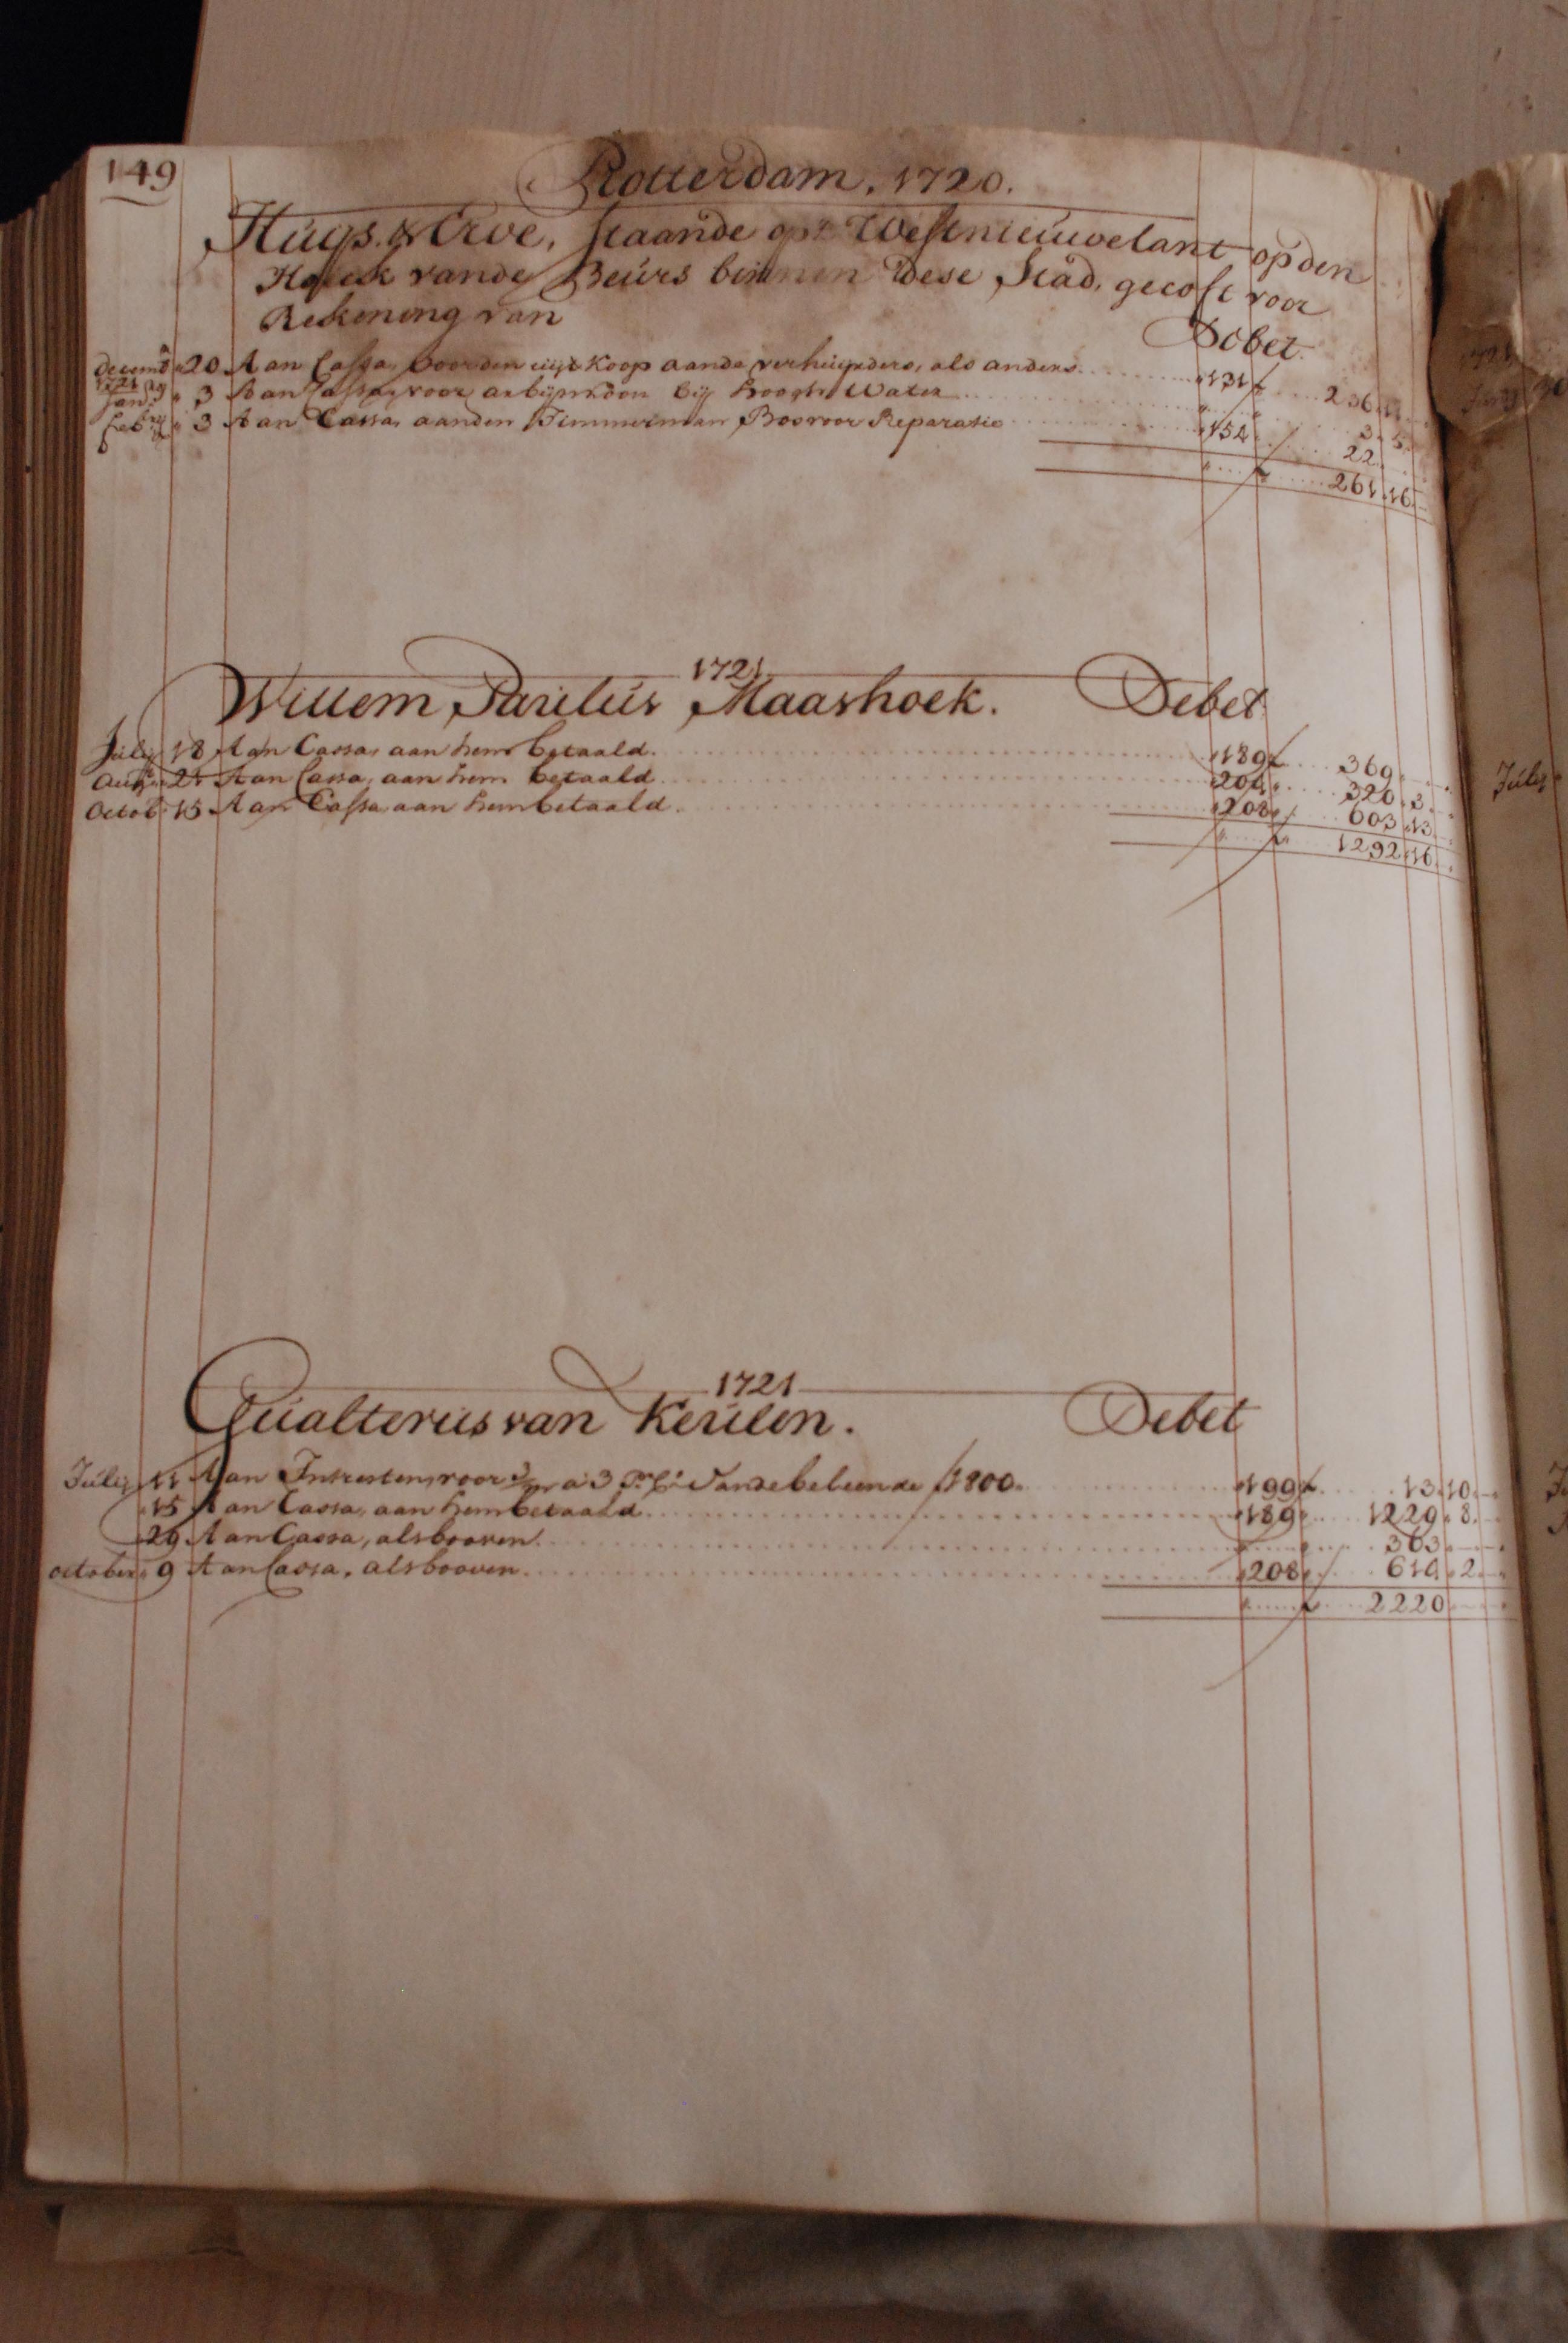 149
Rotterdam, 1720.
Huys & Erve, staande opt Westnieuwelant op den
Hoeck vande Beurs binnen dese Stad, gecost voor
Rekening van
Debet
decemb 20 Aan Cassa, voorden uijtkoop aande verhuijnders, als anders 131 f 236 11
1721 Jan 3 Aan Cassa, voor arbijtsloon bij hoogh Water 3 5
feb 3 Aan Cassa, aanden Timmerman Bos voor Reparatie 152 22
261 16
1721
Willem Paulus Maashoek. Debet
Julij 18 Aan Cassa, aan hem betaald. 189 f 369
Aug 21 Aan Cassa, aan hem betaald. 204 320 3
Octob 15 Aan Cassa, aan hem betaald. 208 603 13
1292 16
1721
Gualterus van Keulen. Debet
Julij 11 Aan Intresten, voor 3/m a 3 Pr Ct vande beleende f 1800. 199 f 13 10
15 Aan Cassa, aan hem betaald 189 1229 8
29 Aan Cassa, als booven. 363
october 9 Aan Cassa, als booven. 208 614 2
2220
Julij